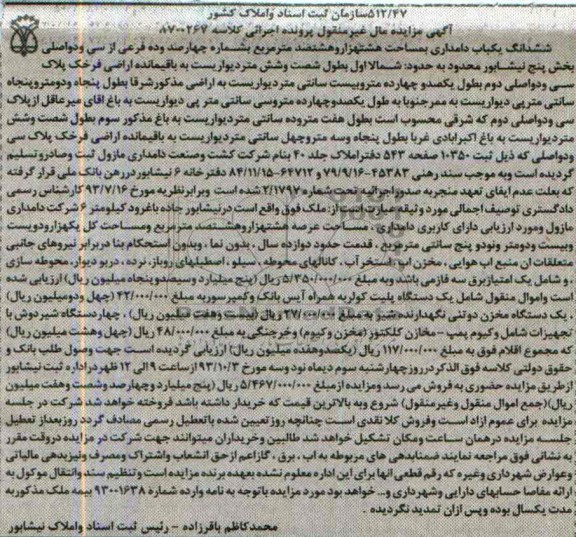 ۵۱۲/۴۷سازمان ثبت اسناد واملاک کشور
آگهی مزایده مال غیرمنقول پرونده اجرائی کلاسه ۸۷۰۰۲۶۷
ششدانگ یکباب دامداری بمساحت هشتهزاروهشتصد مترمربع بشماره چهارصد وده فرعی از سی ودواصلی
بخش پنج نیشابور محدود به حدود: شمالا اول بطول شصت وشش متردیواریست به باقیمانده اراضی فرخک پلاک
سی ودواصلی دوم بطول یکصدو چهارده متروبیست سانتی متردیواریست به اراضی مذکورشرقا بطول پنجاه ودومتروپنجاه
سانتی متریی دیواریست به ممرجنوبا به طول یکصدوچهارده متروسی سانتی متر پی دیواریست به باغ اقای میرعاقل ازپلاک
سی ودواصلی دوم که شرقی محسوب است بطول هفت متروده سانتی متردیواریست به باغ مذکور سوم بطول شصت وشش
متردیواریست به باغ اکبرابادی غربا بطول پنجاه وسه متروچهل سانتی متردیواریست به باقیمانده اراضی فرخک پلاک سی
ودواصلی که ذیل ثبت ۱۰۳۵۰ صفحه ۵۴۳ دفتراملاک جلد ۴۰ بنام شرکت کشت وصنعت دامداری ماژول ثبت وصادروتسلیم
گردیده است وبه موجب سند رهنی ۴۵۳۸۳-۷۹/۹/۱۶ و ۶۴۷۱۲-۸۴/۱۱/۱۵ دفترخانه ۶ نیشابوردررهن بانک ملی قرار گرفته
که بعلت عدم ایفای تعهد منجربه صدوراجرائیه تحت شماره ۲/۱۷۹۷ شده است وبرابرنظریه مورخ ۹۳/۷/۱۶ کارشناس رسمی
دادگستری توصیف اجمالی مورد وثیقه عبارتست از: ملک فوق واقع است درنیشابور جاده باغرود کیلومتر ۶ شرکت دامداری
ماژول ومورد ارزیابی دارای کاربری دامداری . مساحت عرصه هشتهزاروهشتصد مترمربع ومساحت کل یکهزارودویست
وبیست ودومتر ونودو پنج سانتی مترمربع . قدمت حدود دوازده سال . بدون نما ، وبدون استحکام بنا دربرابر نیروهای جانبی
متعلقات ان منبع اب هوایی ، مخزن اب ، استخر آب . کانالهای محوطه ، سیلو ، اصطبلهای روباز، نرده ، دربو دیوار، محوطه سازی
، و شامل یک امتیازبرق سه فازمی باشد وبه مبلغ ۵/۳۵۰/۰۰۰/۰۰۰ ریال (پنج میلیارد وسیصدوپنجاه میلیون ریال) ارزیابی شده
است واموال منقول شامل یک دستگاه پلیت کولربه همراه آیس بانک وکمپرسوربه مبلغ ۴۲/۰۰۰/۰۰۰ (چهل ودومیلیون ریال)
، یک دستگاه مخزن دوتنی نگهدارنده شیر به مبلغ ۲۷/۰۰۰/۰۰۰ ریال (بیست وهفت میلیون ریال) ، چهاردستگاه شیردوش با
تجهیزات شامل وکیوم پمپ -مخازن کلکتور (مخزن وکیوم) وخرجنگی به مبلغ ۴۸/۰۰۰/۰۰۰ ریال (چهل وهشت میلیون ریال)
که مجموع اقلام فوق به مبلغ ۱۱۷/۰۰۰/۰۰۰ ریال (یکصدوهفده میلیون ریال) ارزیابی گردیده است جهت وصول طلب بانک و
حقوق دولتی کلاسه فوق الذکردرروزچهارشنبه سوم دیماه نود وسه مورخ ۹۳/۱۰/۳ ازساعت ۹ الی ۱۲ ظهر دراداره ثبت نیشابور
ازطریق مزایده حضوری به فروش می رسد ومزایده ازمبلغ ۵/۴۶۷/۰۰۰/۰۰۰ ریال (پنج میلیارد وچهارصد وشصت وهفت میلیون
ریال)(جمع اموال منقول وغیرمنقول) شروع وبه بالاترین قیمت که خریدار داشته باشد فروخته خواهد شد شرکت در جلسه
مزایده برای عموم ازاد است وفروش کلا نقدی است چنانچه روزتعیین شده باتعطیل رسمی مصادف گردد روزبعداز تعطیل
جلسه مزایده درهمان ساعت ومکان تشکیل خواهد شد طالبین وخریداران میتوانند جهت شرکت در مزایده دروقت مقرر
به نشانی فوق مراجعه نمایند ضمنابدهی های مربوطه به اب ، برق ، گازاعم ازحق انشعاب واشتراک ومصرف ونیزبدهی مالیاتی
وعوارض شهرداری وغیره که رقم قطعی انها برای این اداره معلوم نشده بعهده برنده مزایده است وتنظیم سند وانتقال موکول به
ارائه مفاصا حسابهای دارایی وشهرداری و... خواهد بود مورد مزایده باتوجه به نامه وارده شماره ۹۳۰۰۱۶۳۸ بیمه ملک مذکوربه
مدت یکسال بوده وپس ازان تمدید نگردیده .
محمدکاظم باقرزاده - رئیس ثبت اسناد واملاک نیشابور